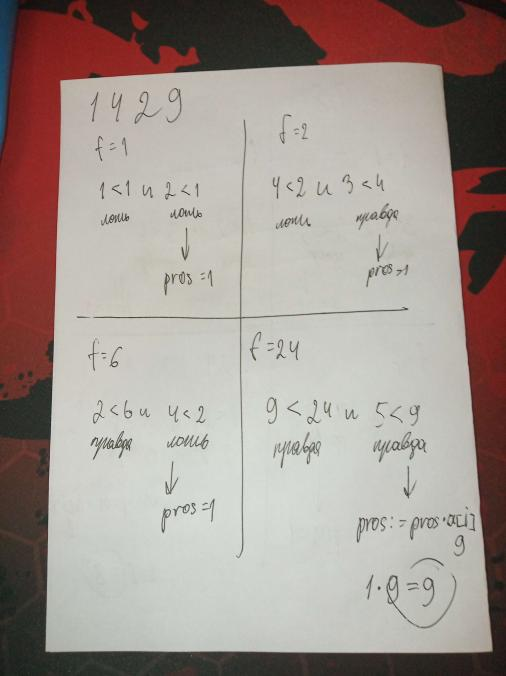 1429
f=1
1<1 и 2<1
ложь ложь
pros=1
f=2
4<2 и 3<4
ложь правда
pros=1
f=6
2<6 и 4<2
правда ложь
pros=1
f=24
9<24 и 5<9
правда правда
pros:=pros·a[i]
9
1·9=9